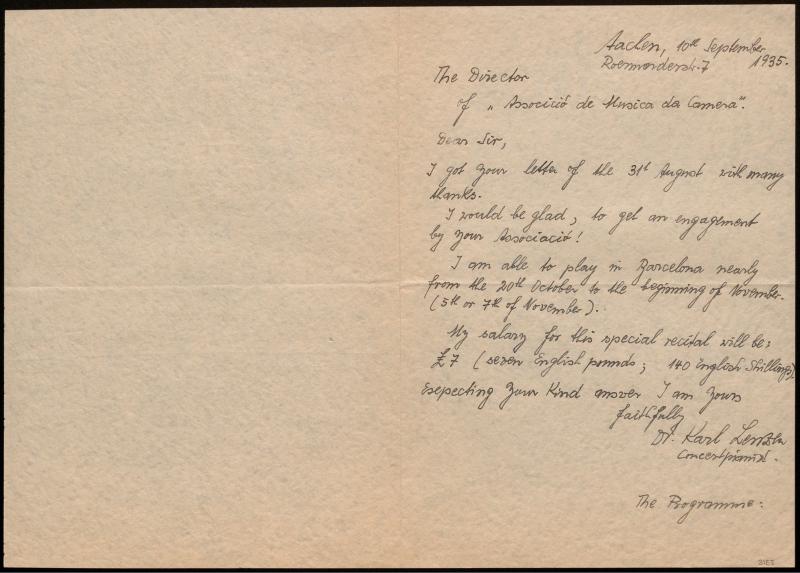 Aachen, 10th September
Roermonderstr. 7 1935.
The Director
of „Associció de Musica da Camera".
Dear Sir,
I got your letter of the 31st August with many
thanks.
I would be glad, to get an engagement
by your Associació!
I am able to play in Barcelona nearly
from the 20th October to the beginning of November.
(5th or 7th of November).
My salary for this special recital will be:
£ 7 (seven English pounds; 140 English Shillings)
Esepecting your kind answer I am yours
faithfully
Dr. Karl
Concertpianist.
The Programme: